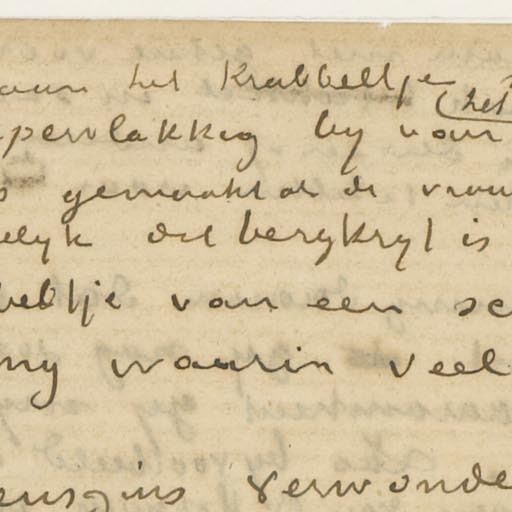 aan het Krabbeltje
(het
pervlakkig by van
gemaakt de vrouw
elyk dat bergkryt is
beltje van een sc
ny waarin veel
enszins verwonde